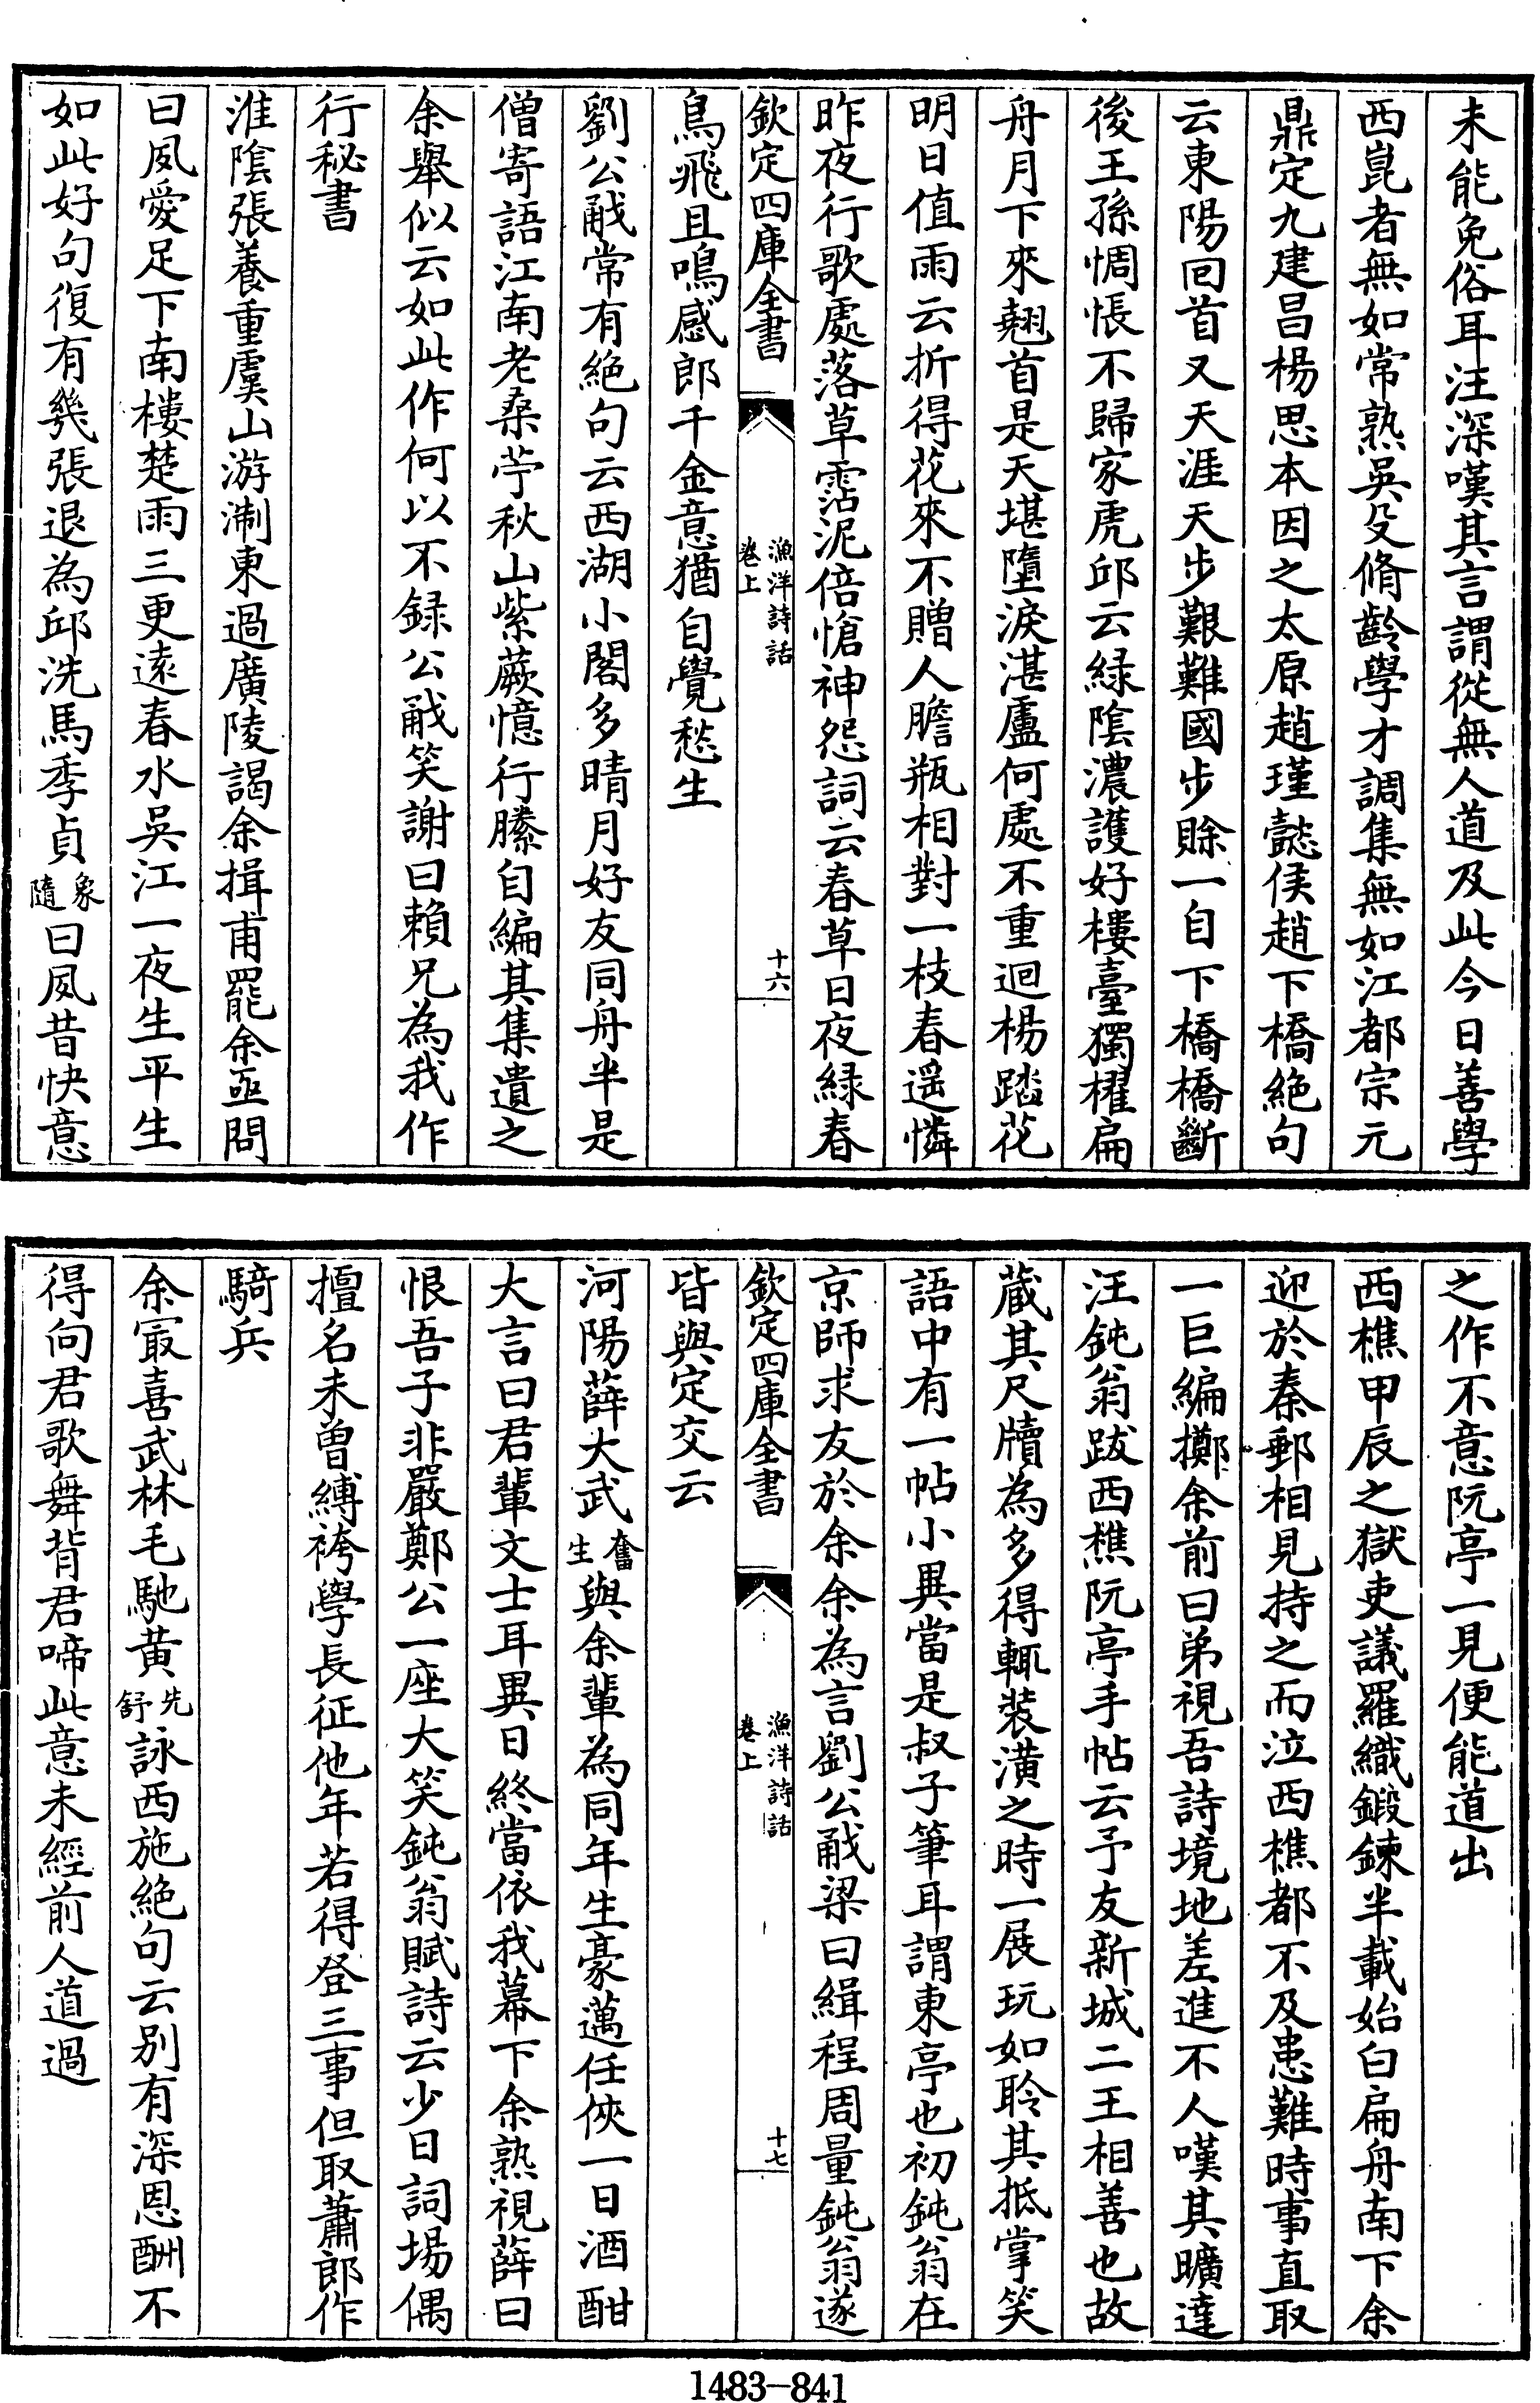 未能免俗耳汪深嘆其言謂從無人道及此今日善學
西崑者無如常熟吳殳脩齡學才調集無如江都宗元
鼎定九建昌楊思本因之太原趙瑾懿侯趙下橋絕句
云東陽回首又天涯天步艱難國步賒一自下橋橋斷
後王孫惆悵不歸家虎邱云緑陰濃護好樓臺獨櫂扁
舟月下來翹首是天堪墮淚湛盧何處不重迴楊踏花
明日值雨云折得花來不贈人膽瓶相對一枝春遥憐
昨夜行歌處落草霑泥倍愴神怨詞云春草日夜緑春
欽定四庫全書
漁洋詩話
卷上
十六
鳥飛且鳴感郎千金意猶自覺愁生
劉公㦷常有絕句云西湖小閣多晴月好友同舟半是
僧寄語江南老桑苧秋山紫蕨憶行縢自編其集遺之
余舉似云如此作何以不録公㦷笑謝曰賴兄為我作
行秘書
淮陰張養重虞山游淛東過廣陵謁余揖甫罷余亟問
曰夙愛足下南樓楚雨三更遠春水吳江一夜生平生
如此好句復有幾張退為邱洗馬季貞象
隨曰夙昔快意
之作不意阮亭一見便能道出
西樵甲辰之獄吏議羅織鍛鍊半載始白扁舟南下余
迎於秦郵相見持之而泣西樵都不及患難時事直取
一巨編擲余前曰弟視吾詩境地差進不人嘆其曠達
汪鈍翁跋西樵阮亭手帖云予友新城二王相善也故
蔵其尺牘為多得輒装潢之時一展玩如聆其抵掌笑
語中有一帖小異當是叔子筆耳謂東亭也初鈍翁在
京師求友於余余為言劉公㦷梁曰緝程周量鈍翁遂
欽定四庫全書
漁洋詩話
卷上
十七
皆與定交云
河陽薛大武奮
生與余輩為同年生豪邁任俠一日酒酣
大言曰君輩文士耳異日終當依我幕下余熟視薛曰
恨吾子非嚴鄭公一座大笑鈍翁賦詩云少日詞場偶
擅名未曽縛袴學長征他年若得登三事但取蕭郎作
騎兵
余冣喜武林毛馳黄先
舒詠西施絕句云别有深恩酬不
得向君歌舞背君啼此意未經前人道過
1483—841